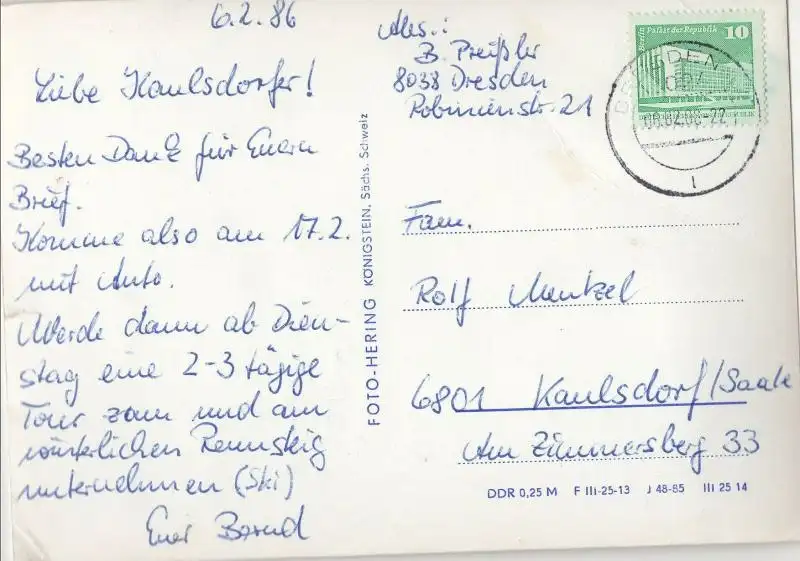 6.2.86
Liebe Kaulsdorfer!
Besten Dank für Euern
Brief.
Komme also am 17.2.
mit Auto.
Werde dann ab Dien-
stag eine 2-3 tägige
Tour zum und am
winterlichen Rennsteig
unternehmen (Ski)
Euer Bernd
FOTO-HERING KÖNIGSTEIN, Sächs. Schweiz
Abs.:
B. Preißler
8038 Dresden
Robinienstr. 21
Berlin Palast der Republik 10
DRESDEN
06.02.86-22
Fam.
Rolf Mentzel
6801 Kaulsdorf/Saale
Am Zimmersberg 33
DDR 0,25 M F III-25-13 J 48-85 III 25 14